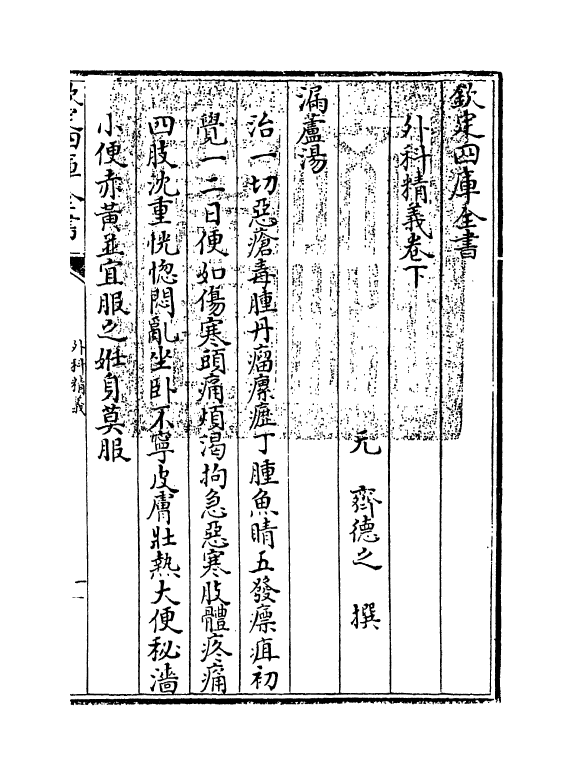 欽定四庫全書
外科精義卷下
元 齊德之 撰
漏蘆湯
治一切惡瘡毒腫丹瘤瘰癧丁腫魚睛五發瘭疽初
覺一二日便如傷寒頭痛煩渴拘急惡寒肢體疼痛
四肢沈重恍惚悶亂坐卧不寧皮膚壯熱大便秘濇
小便赤黃並宜服之姙身莫服
欽定四庫全書
外科精義
一